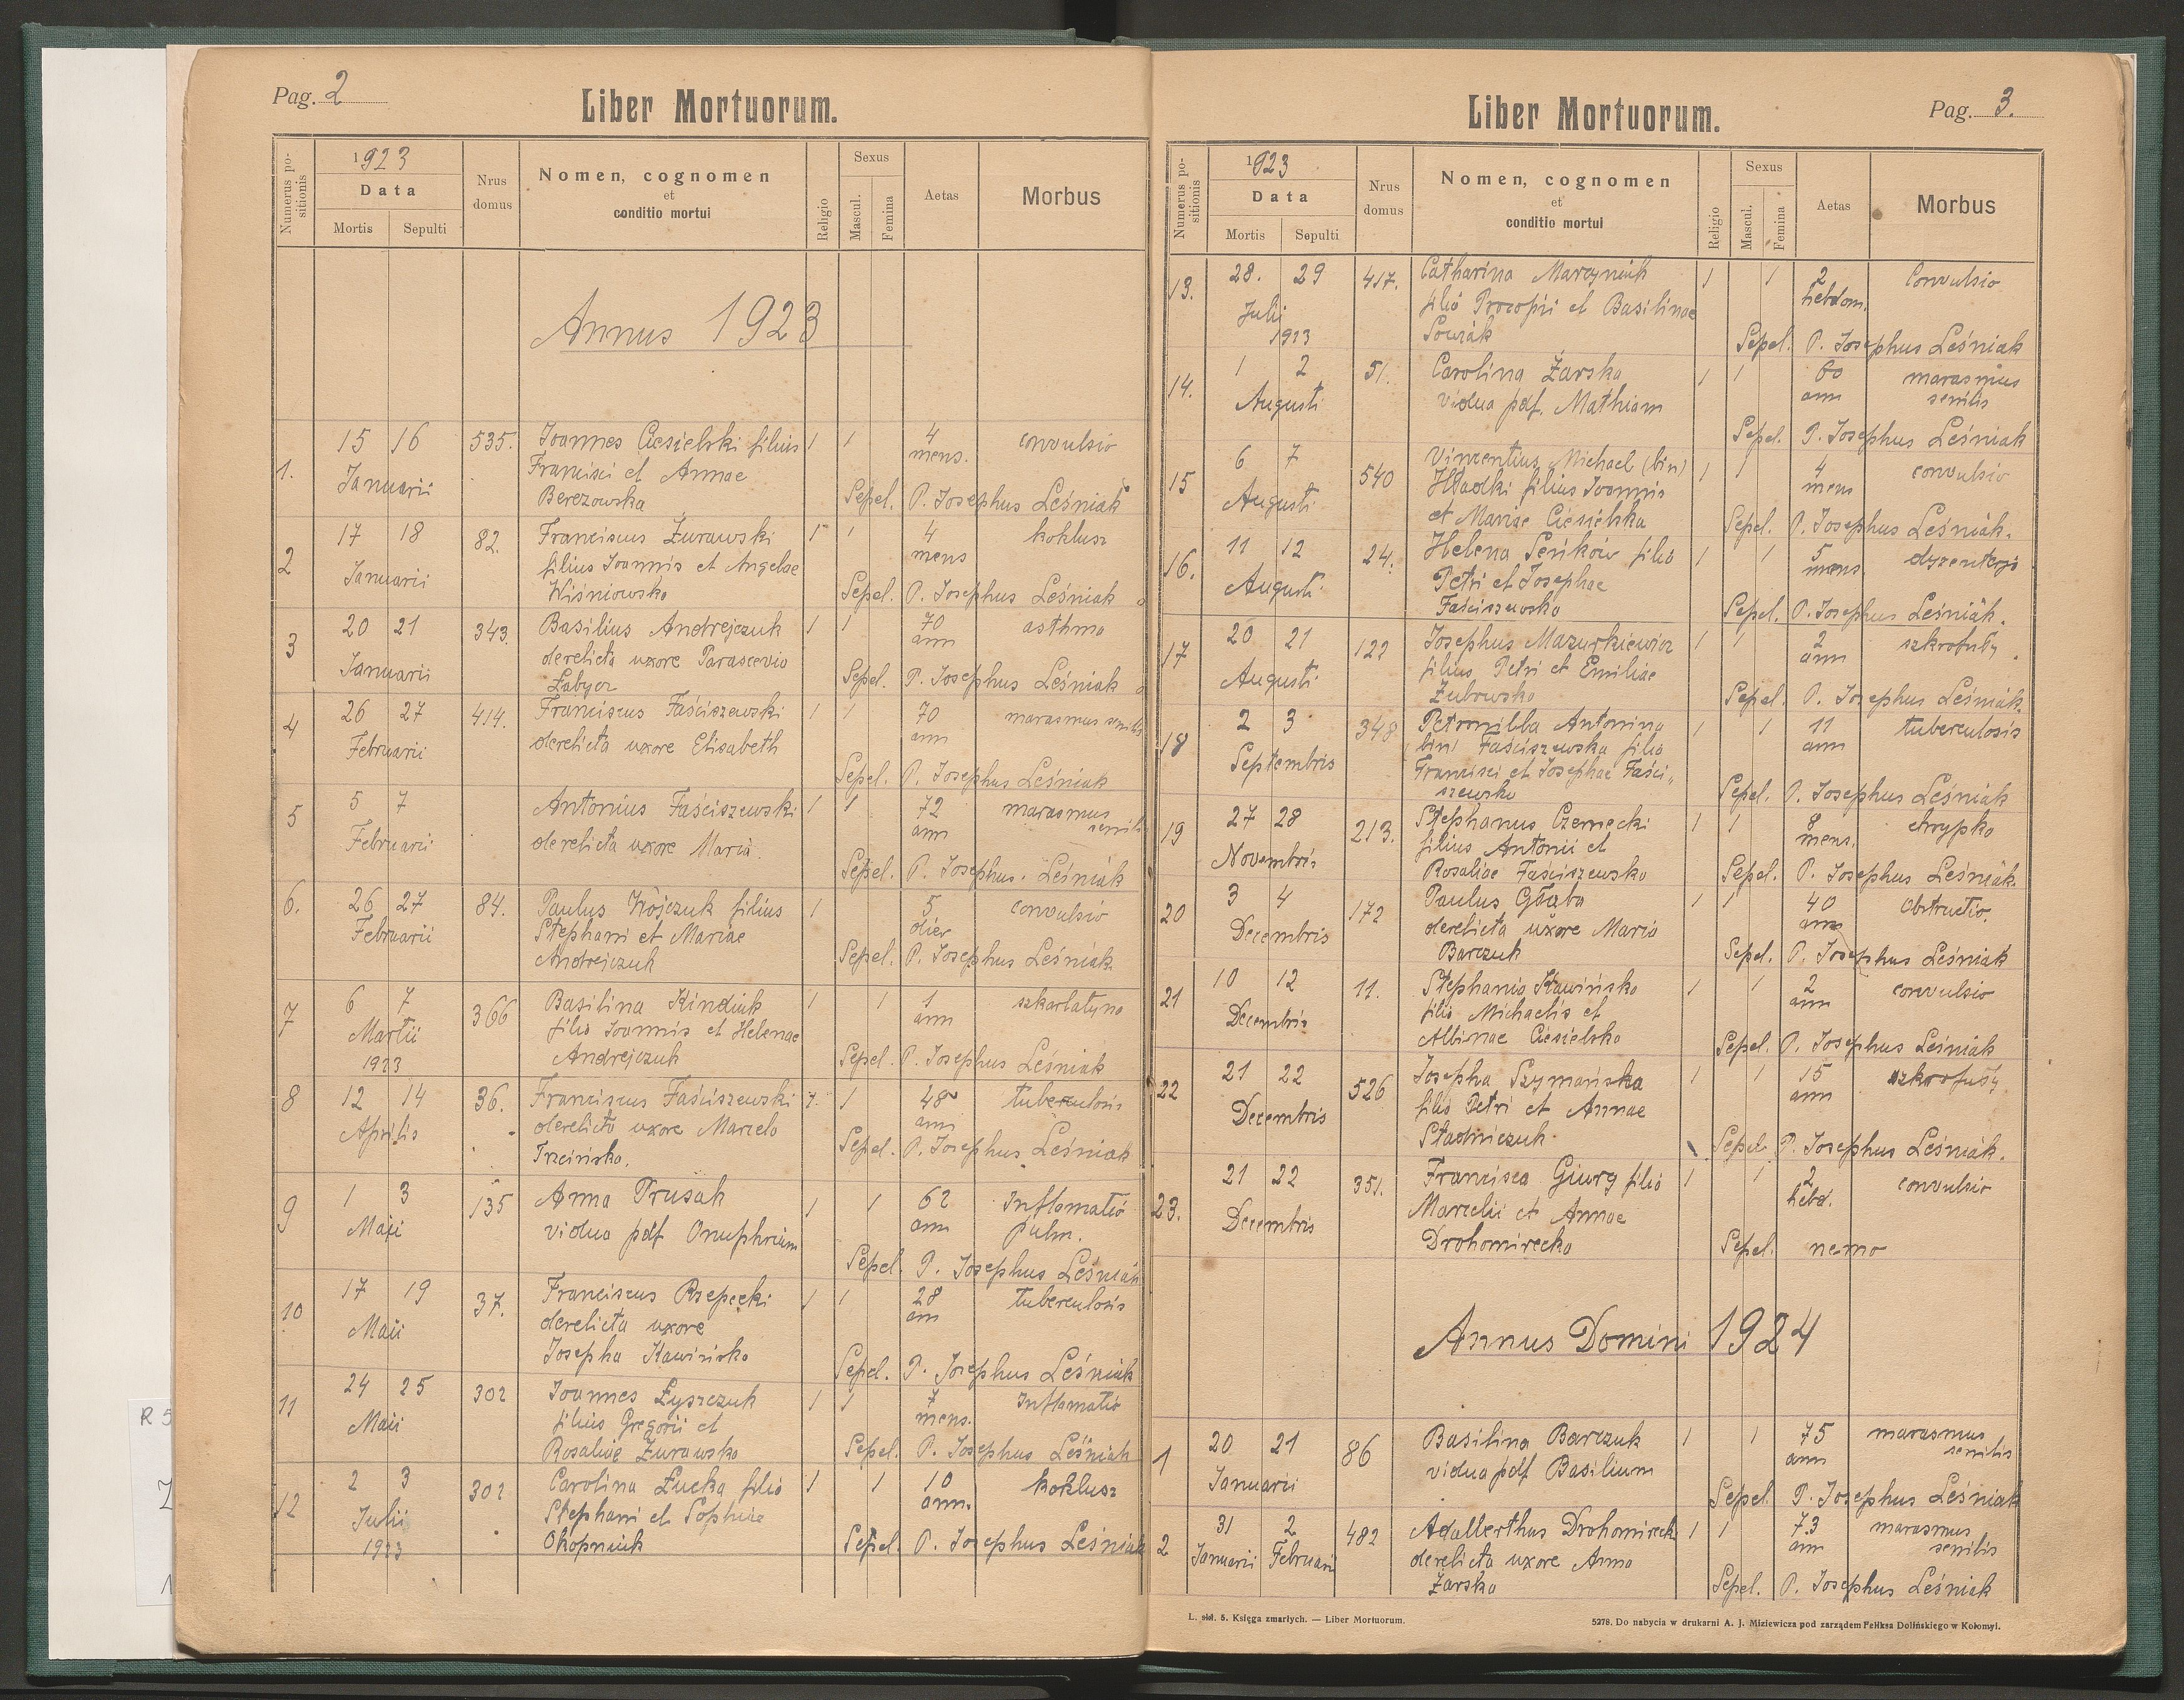 Pag. 2
Liber Mortuorum.
Numerus positionis
1923
Data
Mortis Sepulti
Nrus domus
Nomen, cognomen
et
conditio mortui
Religio
Sexus
Mascul. Femina
Aetas
Morbus
Annus 1923
1. 15 16 535. Joannes Ciesielski filius 1 1 4 convulsio
Januarii Francisci et Annae mens.
Berezowska Sepel. P. Josephus Leśniak
2 17 18 82. Franciscus Żurawski 1 1 4 koklusz
Januarii filius Joannis et Angelae mens
Wiśniowska Sepel. P. Josephus Leśniak
3 20 21 343. Basilius Andrejczuk 1 1 70 asthma
Januarii derelicta uxore Parascevia ann
Łabycz Sepel. P. Josephus Leśniak
4 26 27 414. Franciscus Faściszewski 1 1 70 marasmus senilis
Februarii derelicta uxore Elisabeth ann
Sepel. P. Josephus Leśniak
5 5 7 Antonius Faściszewski 1 1 72 marasmus
Februarii derelicta uxore Maria. ann senilis
Sepel. P. Josephus Leśniak
6. 26 27 84. Paulus Wójczuk filius 1 5 convulsio
Februarii Stephani et Mariae dier
Andrejczuk Sepel. P. Josephus Leśniak.
7 6 7 366 Basilina Kindiuk 1 1 1 szkarlatyna
Martii filia Joannis et Helenae ann
1923 Andrejczuk Sepel. P. Josephus Leśniak
8 12 14 36. Franciscus Faściszewski 1. 1 48 tuberculosis
Aprilis derelicta uxore Marcela ann
Trzcińska. Sepel. P. Josephus Leśniak
9 1 3 135 Anna Prusak 1 1 62 Inflamatio
Maji vidua pdf Onuphrium ann pulm.
Sepel. P. Josephus Leśniak
10 17 19 37. Franciscus Rzepecki 1 1 28 tuberculosis
Maii derelicta uxore ann
Josepha Kawińska Sepel. P. Josephus Leśniak
11 24 25 302 Joannes Łyszczuk 1 1 7 Inflamatio
Maii filius Gregorii et mens.
Rosaliae Żurawska Sepel. P. Josephus Leśniak
12 2 3 302 Carolina Łucka filia 1 1 10 koklusz
Julii Stephani et Sophiae ann.
1923 Okopniuk Sepel. P. Josephus Leśniak
Pag. 3.
Liber Mortuorum.
Numerus positionis
1923
Data
Mortis Sepulti
Nrus domus
Nomen, cognomen
et
conditio mortui
Religio
Sexus
Mascul. Femina
Aetas
Morbus
13. 28. 29 417. Catharina Marcyniuk 1 1 2 Convulsio
Julii filia Procopii et Basilinae hebdom.
1923 Sepel. P. Josephus Leśniak
14. 1 2 51. Carolina Żarska 1 1 60 marasmus
Augusti vidua pdf. Mathiam ann senilis
Sepel. P. Josephus Leśniak
15 6 7 540 Vincentius Michael (bin) 1 1 4 convulsio
Augusti Hładki filius Joannis mens
et Mariae Ciesielska Sepel. P. Josephus Leśniak.
16. 11 12 24. Helena Seńków filia 1 1 5 dyzenterja
Augusti Petri et Josephae mens
Faściszewska Sepel. P. Josephus Leśniak.
17 20 21 122 Josephus Mazurkiewicz 1 1 2 szkrofuły
Augusti filius Petri et Emiliae ann
Żubrowska Sepel. P. Josephus Leśniak.
18 2 3 348 Petronilla Antonina 1 1 11 tuberculosis
Septembris (bin) Faściszewska filia ann
Francisci et Josephae Faści„
szewska Sepel. P. Josephus Leśniak
19 27 28 213. Stephanus Czernecki 1 1 8 chrypka
Novembris filius Antonii et mens.
Rosaliae Faściszewska Sepel. P. Josephus Leśniak.
20 3 4 172 Paulus Głąba 1 1 40 Obstructio.
Decembris derelicta uxore Maria ann
Barczuk Sepel. P. Josephus Leśniak
21 10 12 11. Stephania Kawińska 1 1 2 convulsio
Decembris filia Michaelis et ann
Albinae Ciesielska Sepel. P. Josephus Leśniak
22 21 22 526 Josepha Szymańska 1 1 15 szkrofuły
Decembris filia Petri et Annae ann
Stadniczuk Sepel. P. Josephus Leśniak.
23. 21 22 351. Francisca Giurg filia 1 1 2 convulsio
Decembris Marcelii et Annae hebd.
Drohomirecka Sepel. nemo
Annus Domini 1924
1 20 21 86 Basilina Barczuk 1 1 75 marasmus
Januarii vidua pdf Basilium ann senilis
Sepel. P. Josephus Leśniak
2 31 2 482 Adalberthus Drohomirecki 1 1 73 marasmus
Januarii Februarii derelicta uxore Anna ann senilis
Żarska Sepel. P. Josephus Leśniak
L. skł. 5. Księga zmarłych. — Liber Mortuorum.
5278. Do nabycia w drukarni A. J. Miziewicza pod zarządem Feliksa Dolińskiego w Kołomyi.